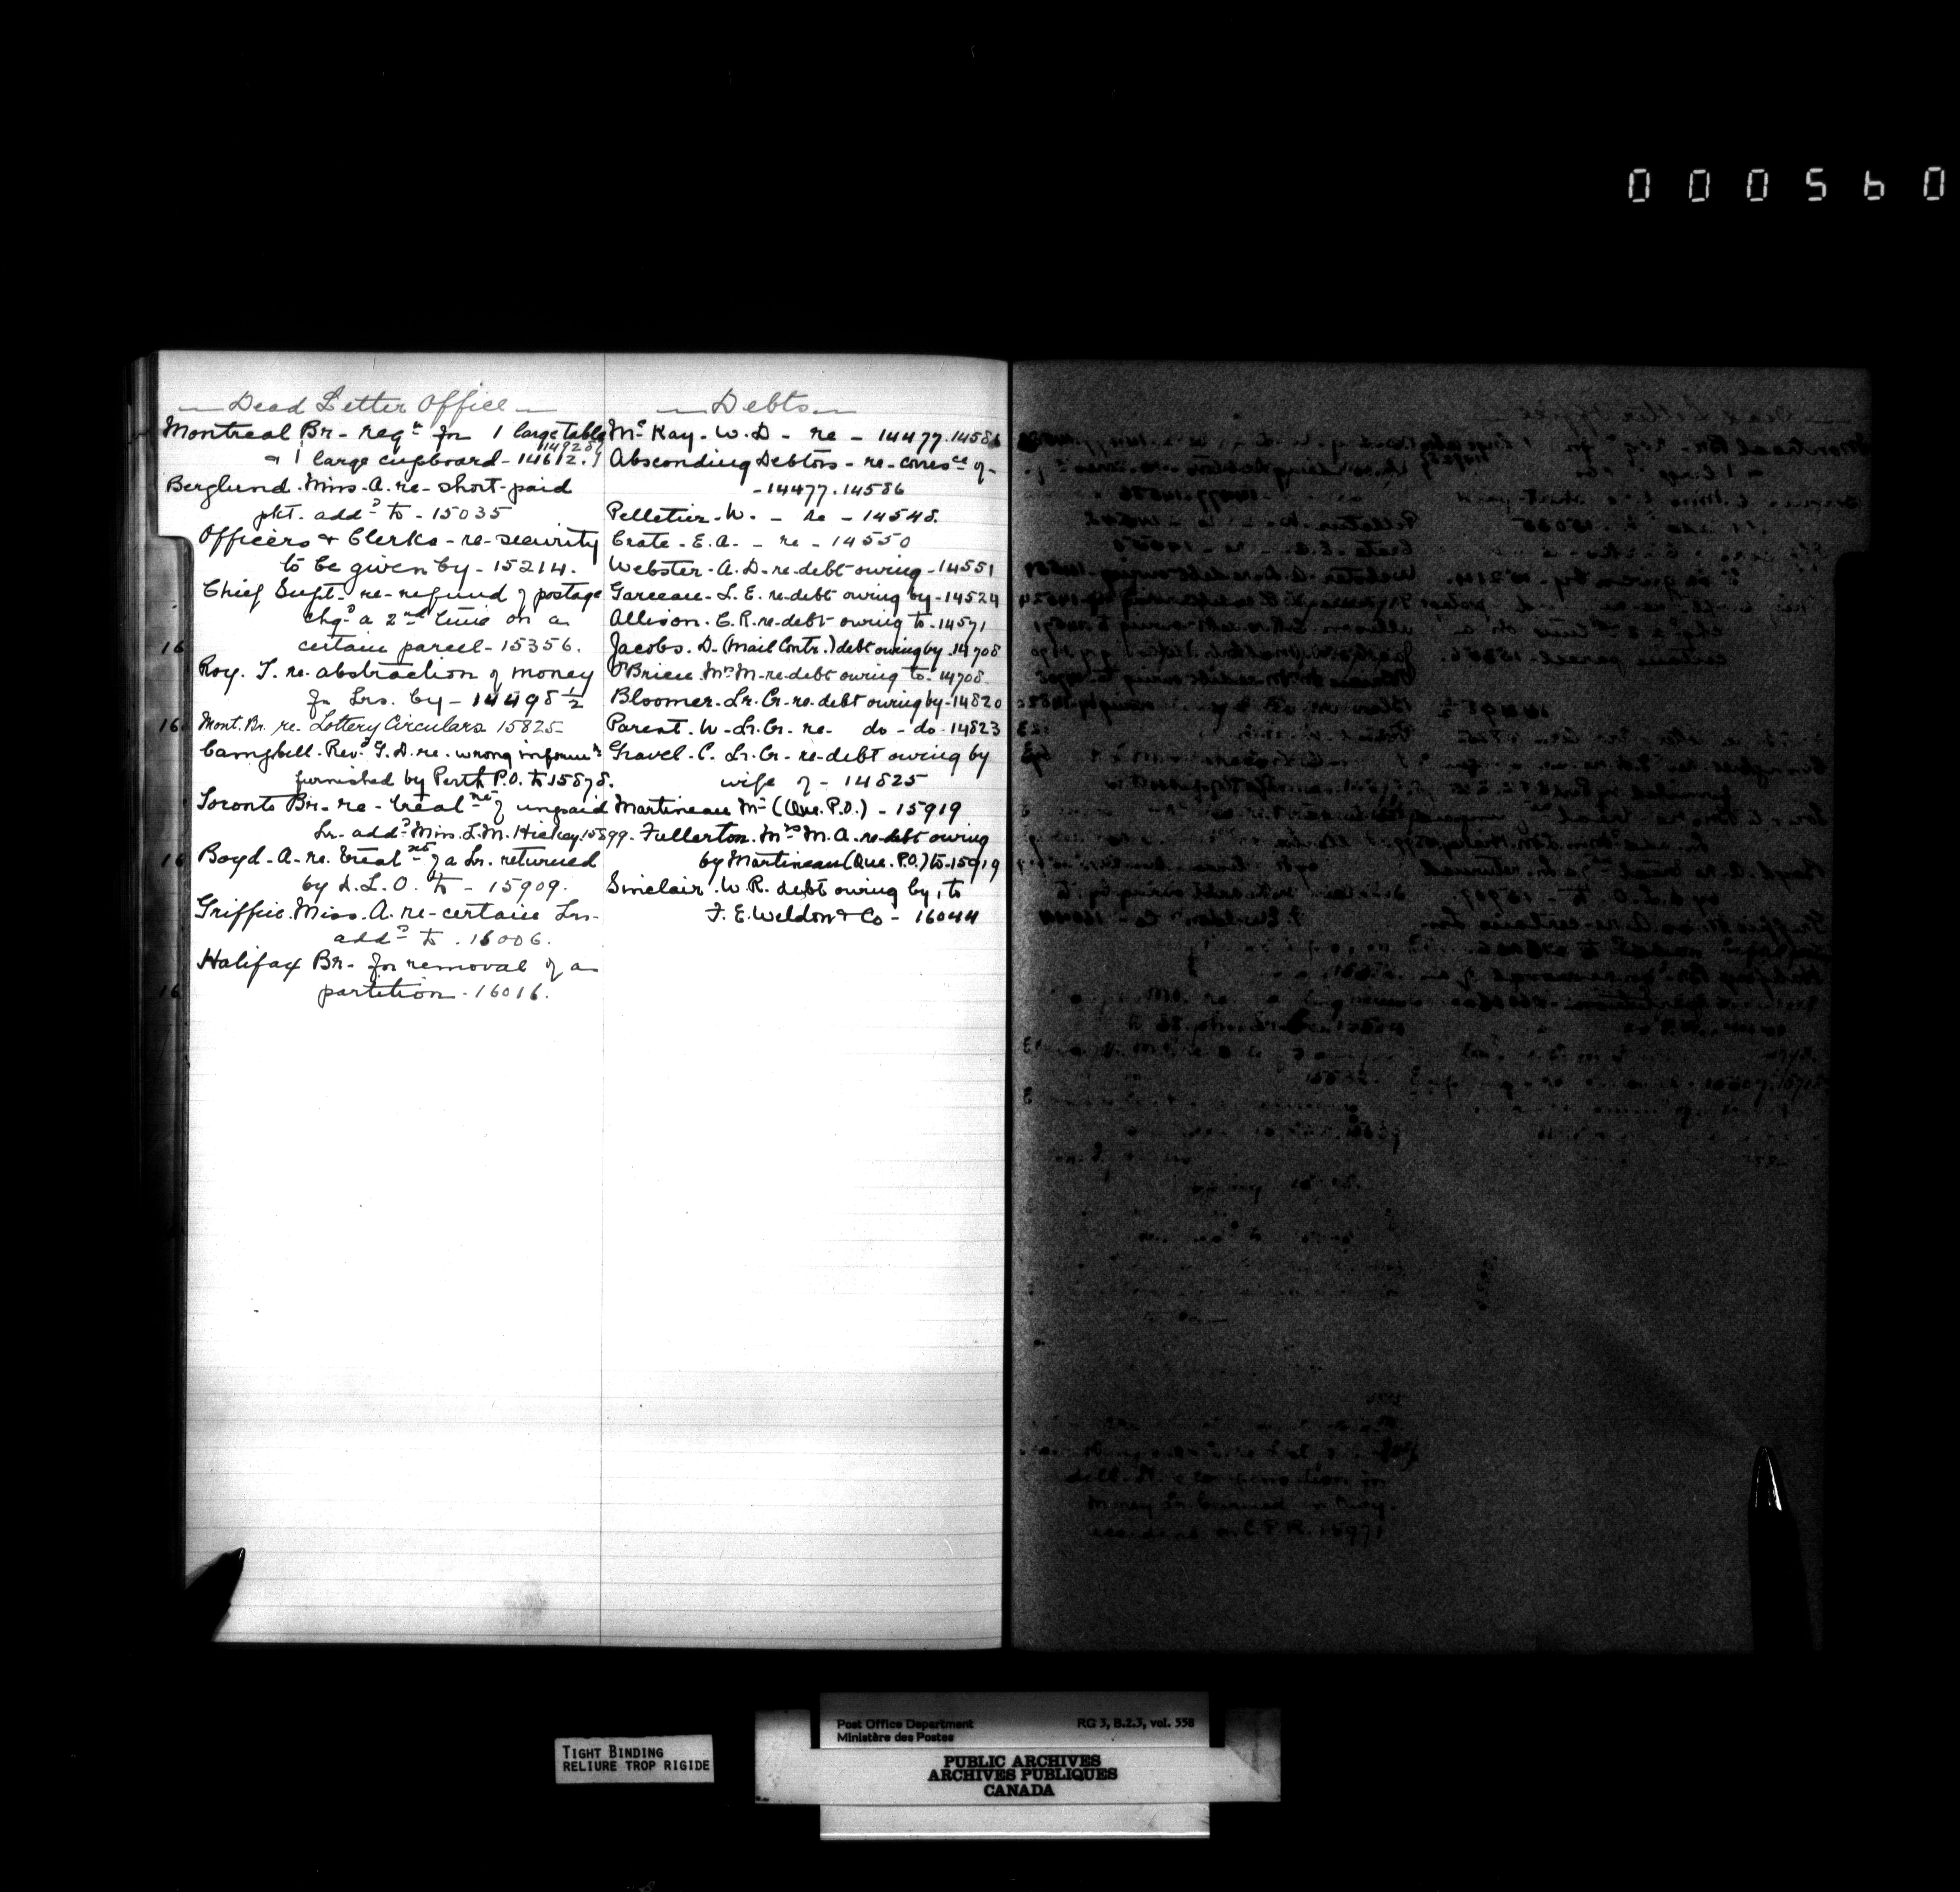 000560
— Dead Letter Office —
Montreal Br - reqn for 1 large table
& 1 large cupboard - 14612.
Berglund. Miss. A. re - short-paid
pkt. addd to - 15035
Officers & Clerks - re - security
to be given by - 15214.
Chief Supt. re - refund of postage
chgd a 2nd time on a
certain parcel - 15356.
Roy. T. re. abstraction of money
fm Lrs. by - 14498 1/2
Mont. Br. re. Lottery Circulars 15825
Campbell. Revd G. D. re. wrong informn
furnished by Perth P.O. to 15878.
Toronto Br - re - treatmt of unpaid
Lr. addd Miss. L. M. Hickey. 15899.
Boyd - A. re. treatmt of a Lr. returned
by D. L. O. to - 15909.
Griffin. Miss. A. re - certain Lrs -
addd to . 16006.
Halifax Br - for removal of a
partition - 16016.
16
16
16
16
— Debts —
Mc Kay. W. D - re - 14477. 14586
Absconding Debtors - re - corresce of -
- 14477. 14586
Pelletier. W. - re - 14548.
Crate. E. A. - re - 14550
Webster. A. D. re. debt owing - 14551
Garceau. L. E. re. debt owing by - 14524
Allison. C. R. re. debt owing to - 14571
Jacobs. D. (Mail Contr.) debt owing by. 14708
O'Brien. Mrs M. re. debt owing to - 14708.
Bloomer. Lr. Cr. re. debt owing by - 14820
Parent. W. Lr. Cr. re. do - do - 14823
Gravel. C. Lr. Cr. re. debt owing by
wife of - 14825
Martineau Mr (Que. P.O.) - 15919
Fullerton. Mrs M. A. re. debt owing
by Martineau (Que. P.O.) to - 15919
Sinclair. W. R. debt owing by, to
F. E. Weldon & Co - 16044
TIGHT BINDING
RELIURE TROP RIGIDE
Post Office Department RG 3, B.2.3, vol. 558
Ministère des Postes
PUBLIC ARCHIVES
ARCHIVES PUBLIQUES
CANADA